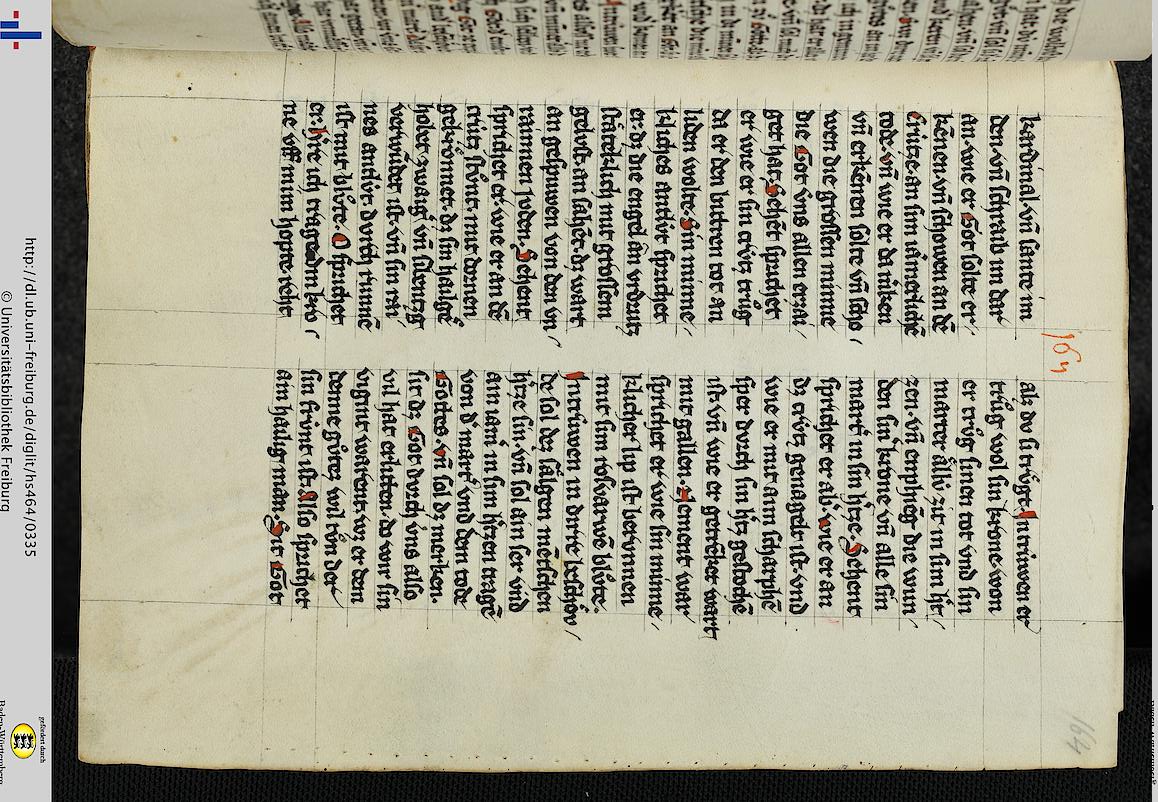 164
kardinal. vn̄ sante im
den. vn̄ schraib im dar
an. wie er Got solte er/
kēnen. vn̄ schowen an dē
Crütze. an sim iamerlichē
tode. vn̄ wie er da niken
vn̄ erkēnen solte vn̄ scho/
wen die grossen minne
die Got vns allen erzai/
get hat. Sehēt sprichet
er wie er sin crütz trůg
da er den bittren tot an
liden wolte. Sin minne/
kliches antlüt sprichet
er. dz die engel an vrdrutz
stäteklich mit grossen
gelust. an sahēt. dz wart
an gespuwen von den vn/
rainnen juden. Sehent
sprichet er. wie er an dē
crütz stůnt. mit dornen
gekrönnet. dz sin hailgē
holet. zwaig vn̄ sibentzg
verwüdet ist. vn̄ sin rai/
nes antlüt. durch runnē
ist mit blůte. O sprichet
er. hre ich trage din kro/
ne vff mim hopte reht
alz do si trůgt. Intriuwen er
trůg wol sin krone. won
er trůg sinen tot vnd sin
marter ällü zit in sim htz/
zen. vn̄ emphieg die wun/
den sin krone vn̄ alle sin
mart̾ in sin htze. Sehent
sprichet er. alz wie er an
dz crütz genagelt ist. vnd
wie er mit aim scharphē
sper durch sin htz gestochē
ist. vn̄ wie er getrēket wart
mit gallen. Nement war
sprichet er wie sin minne/
klicher lip ist berunnen
mit sim rosvarwē blůte.
Intruwen in dirre beschöv/
de sol dez sälgen mēschen
htze sin. vn̄ sol ain ser vnd
ain iam̾ in sim htzen tragē
von d̾ mart̾ vnd dem tode
Gottes. vn̄ sol dz merken.
sit dz Got durch vns also
vil hat erlitten. do wir sin
vigint warent. wz er den
denne gůtez wil tůn der
sin frünt ist. Also sprichet
ain hailig man. Sit Got
164
http://dl.ub.uni-freiburg.de/diglit/hs464/0335
© Universitätsbibliothek Freiburg
gefördert durch
Baden-Württemberg